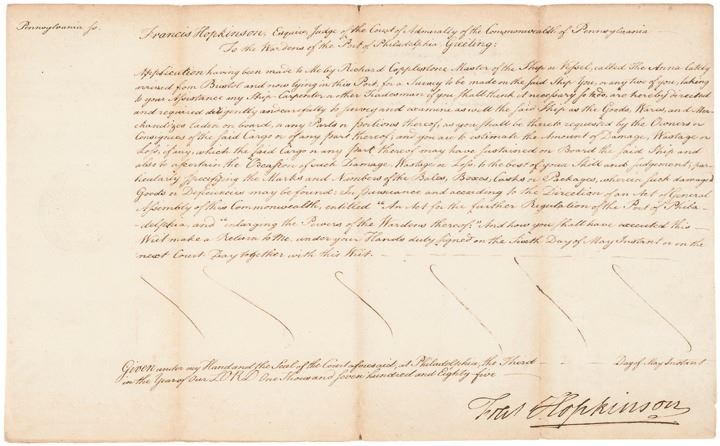 Pennsylvania ss.
Francis Hopkinson, Esquire, Judge of the Court of Admiralty of the Commonwealth of Pennsylvania
To the Wardens of the Port of Philadelphia Greeting:
Application having been made to Me by Richard Copplestone Master of the Ship or Vessel, called The Anna Catey
arrived from Bristol and now lying in this Port, for a Survey to be made on the said Ship You, or any two of you, taking
to your Assistance any Ship Carpenter or other Tradesman if you shall think it necessary so to do, are hereby directed
and required diligently and carefully to survey and examine as well the said Ship as the Goods, Wares, and Mer-
chandizes laden on board, or any Part or Portions thereof, as you shall be thereto requested by the Owners or
Consignees of the said Cargo or of any part thereof; and you are to estimate the Amount of Damage, Wastage or
Loss, if any, which the said Cargo or any part thereof may have sustained on Board the said Ship and
also to ascertain the Occasion of such Damage Wastage or Loss to the best of your Skill and judgement; par-
ticularly specifying the Marks and Numbers of the Bales, Boxes, Casks or Packages, wherein such damaged
Goods or Deficiencies may be found: In pursuance and according to the Direction of an Act of General
Assembly of this Commonwealth, entitled "An Act for the further Regulation of the Port of Phila-
delphia, and "enlarging the Powers of the Wardens thereof." And how you shall have executed this
Writ make a Return to Me, under your Hands duly signed on the Sixth Day of May Instant or on the
next Court Day together with this Writ.
Given under my Hand and the Seal of the Court aforesaid, at Philadelphia, the Third Day of May Instant
in the Year of Our LORD One Thousand seven hundred and Eighty five
Fras Hopkinson